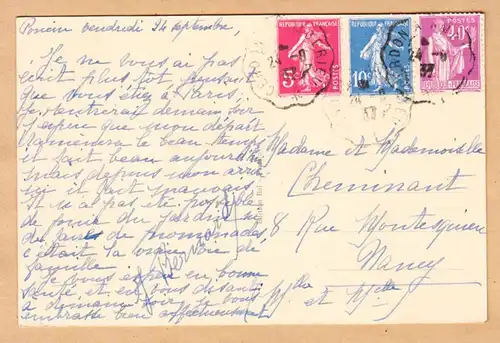 vendredi 24 septembre,
Je ne vous ai pas
écrit plus tôt pensant
que vous étiez à Paris.
Je rentrerai demain soir
J'espère que mon départ
ramènera le beau temps
il fait beau aujourd'hui
mais depuis mon arri-
il fait mauvais
Il n'a pas été possible
de jouir du jardin ni
de faire de promenades
c'était la vraie vie de
famille
Je vous espère en bonne
santé, et en vous disant
à demain soir, je vous
embrasse bien affectueusement
RÉPUBLIQUE FRANÇAISE
POSTES
5c
RÉPUBLIQUE FRANÇAISE
10c
POSTES
40c
RÉPUBLIQUE FRANÇAISE
24 - 9
37
Madame et Mademoiselle
Cheminant
8 Rue Montesquieu
Nancy
Mlle et Mlle